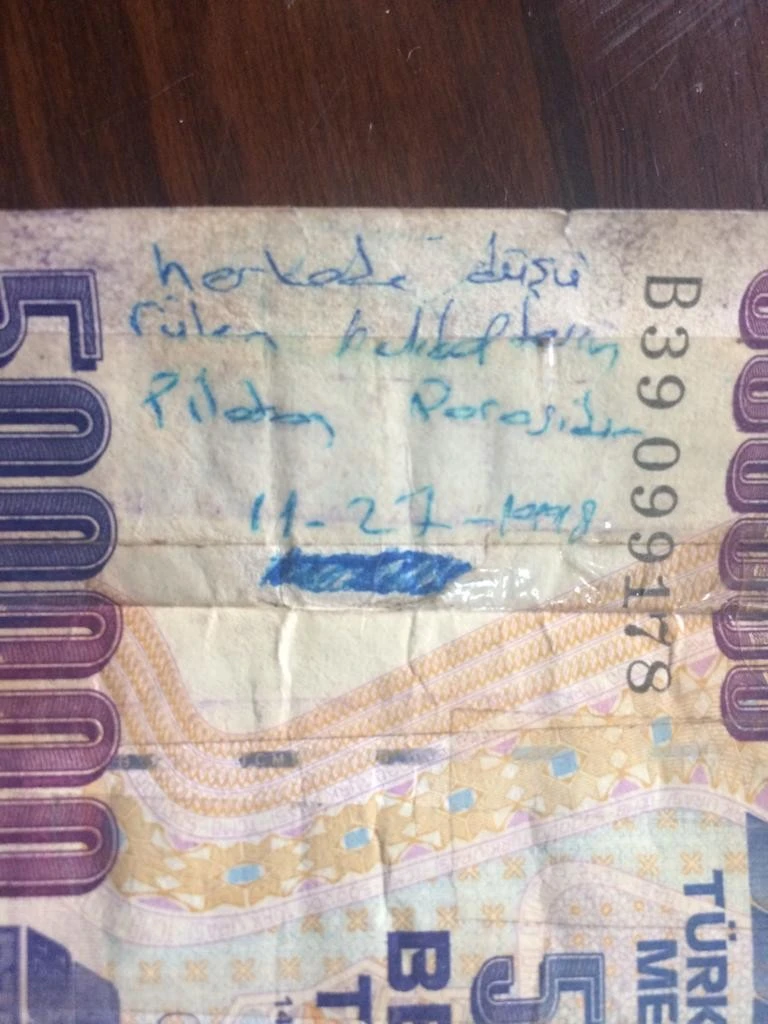 herkade düşü
rülen helikopterin
Pilotun Parasıdır
11-27-1998
B39 099178
5000000
000000
TÜRK
ME
BE
T
5